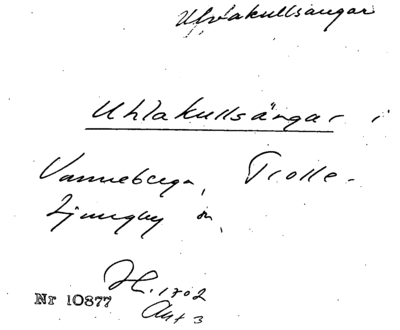 Uhlakullsängar
Uhlakullsängar i
Vanneberga, Trolle-
Ljungby sn,
H. 1702
Nr 10877
Akt 3